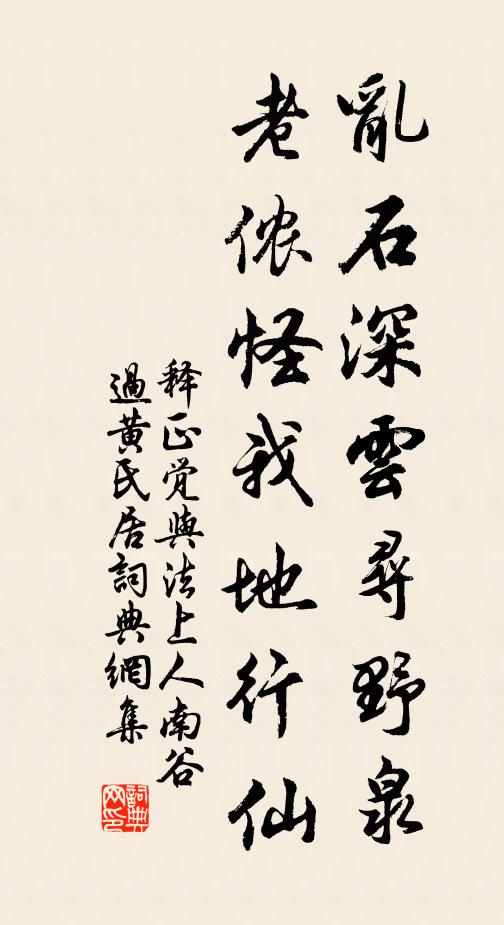 亂石深雲尋野泉
老侬怪我地行仙
释正觉與法上人南谷
過黃氏居詞典網集
詞典
网印